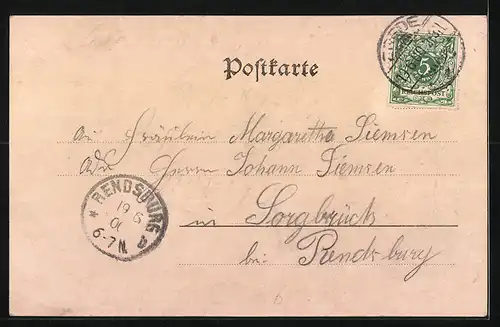 Postkarte
5
REICHSPOST
An Fräulein Margaretha Siemsen
Adr. Herrn Johann Siemsen
in Sorgbrück
bei Rendsburg
* RENDSBURG
19 6
00
6-7 N.